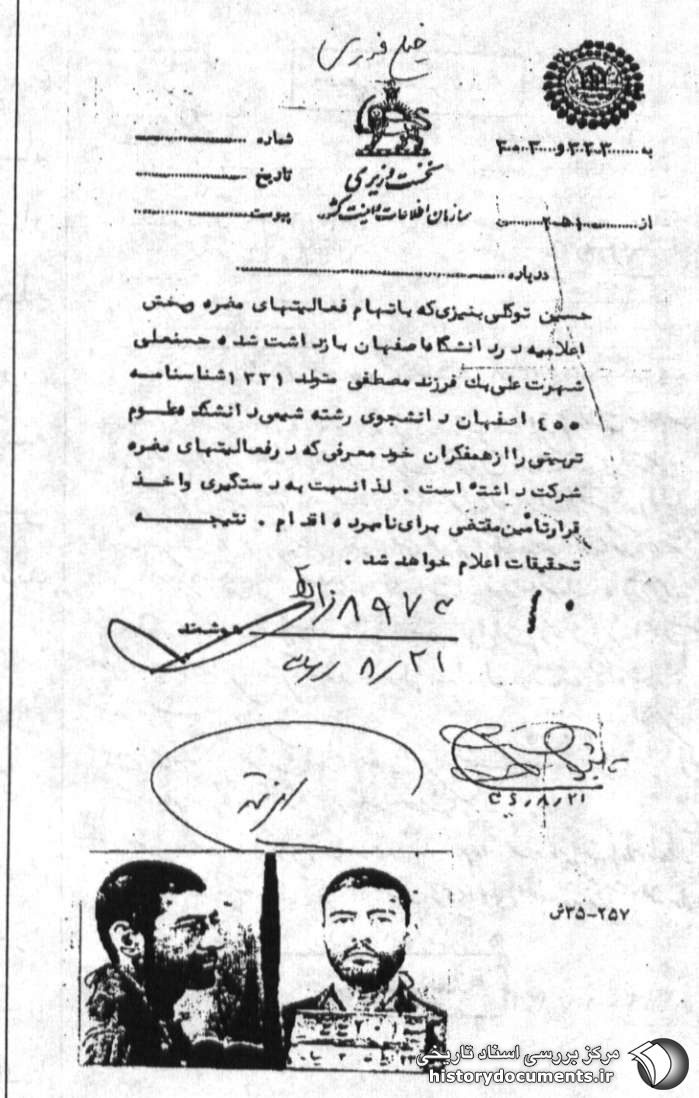 خیلی فوری
شماره
به ۳۲۳ و ۳۰۳
نخست وزیری
تاریخ
سازمان اطلاعات و امنیت کشور
پیوست
از ۲۵۱
درباره
حسین توکلی بنیزی که باتهام فعالیتهای مضره و پخش
اعلامیه در دانشگاه اصفهان بازداشت شده حسنعلی
شهرت علی بك فرزند مصطفی متولد ۱۳۳۱ شناسنامه
۴۵۵ اصفهان دانشجوی رشته شیمی دانشکده علوم
تربیتی را از همفکران خود معرفی که در فعالیتهای مضره
شرکت داشته است . لذا نسبت به دستگیری و اخذ
قرار تأمین مقتضی برای نامبرده اقدام . نتیجه
تحقیقات اعلام خواهد شد .
هوشمند
۲۱/۸
۲۵۷-۳۵ش
مرکز بررسی اسناد تاریخی
historydocuments.ir